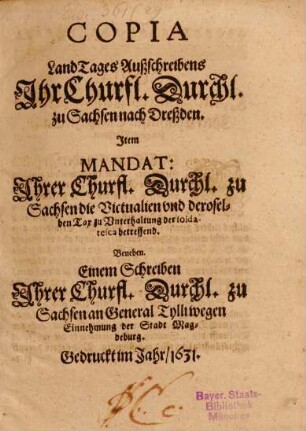 COPIA
LandTages Außschreibens
Ihr Churfl. Durchl.
zu Sachsen nach Dreßden.
Item
MANDAT:
Ihrer Churfl. Durchl. zu
Sachsen die Victualien vnd derosel-
ben Tax zu Vnterhaltung der solda-
tesca betreffend.
Beneben.
Einem Schreiben
Ihrer Churfl. Durchl. zu
Sachsen an General Tylli wegen
Einnehmung der Stadt Mag-
deburg.
Gedruckt im Jahr/1631.
Bayer. Staats-
Bibliothek
München